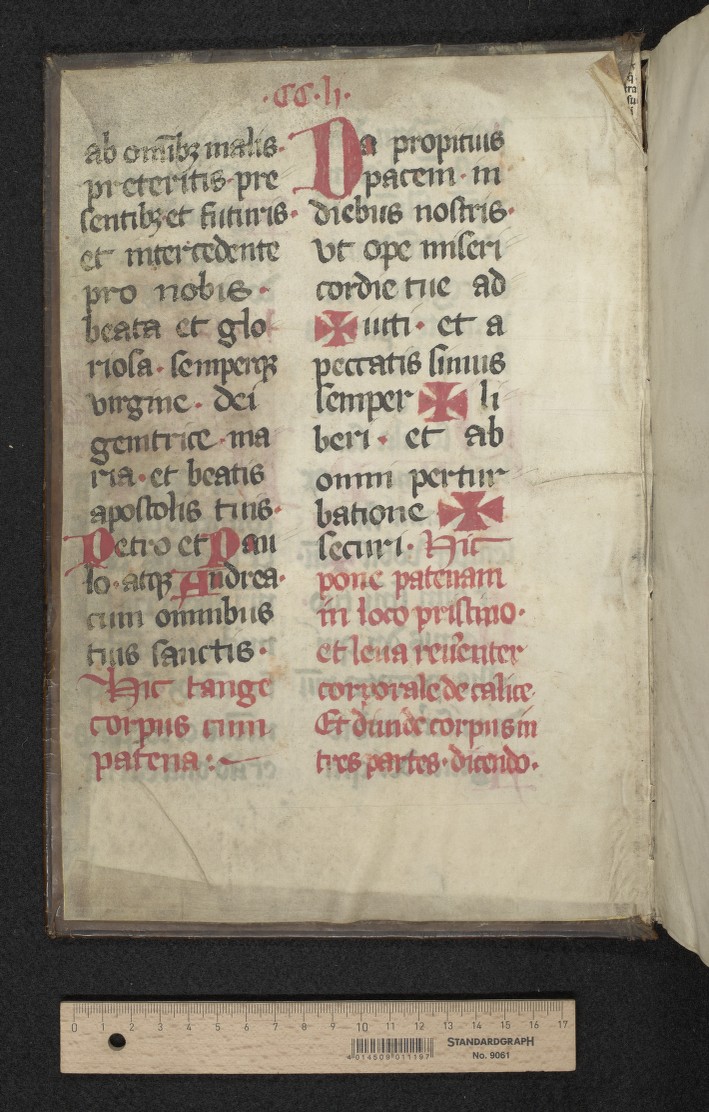 ·CC·li·
ab om̅ibꝫ malis·
preteritis·pre
sentibꝫ et futuris·
et intercedente
pro nobis·
beata et glo
riosa·semperqꝫ
virgine·dei
genitrice·ma
ria·et beatis
apostolis tuis·
Petro et Pau
lo·atqꝫ Andrea·
cum omnibus
tuis sanctis·
Hic tange
corpus cum
patena:~
Da propitius
pacem·in
diebus nostris·
vt ope miseri
cordie tue ad
✠ iuti·et a
peccatis simus
semper ✠ li
beri·et ab
omni pertur
batione ✠
securi·Hic
pone patenam
in loco pristino·
et leua reu̕enter
corporale de calice·
Et diuide corpus in
tres partes·dicendo·
0 1 2 3 4 5 6 7 8 9 10 11 12 13 14 15 16 17
STANDARDGRAPH
No. 9061
4 014509 011167